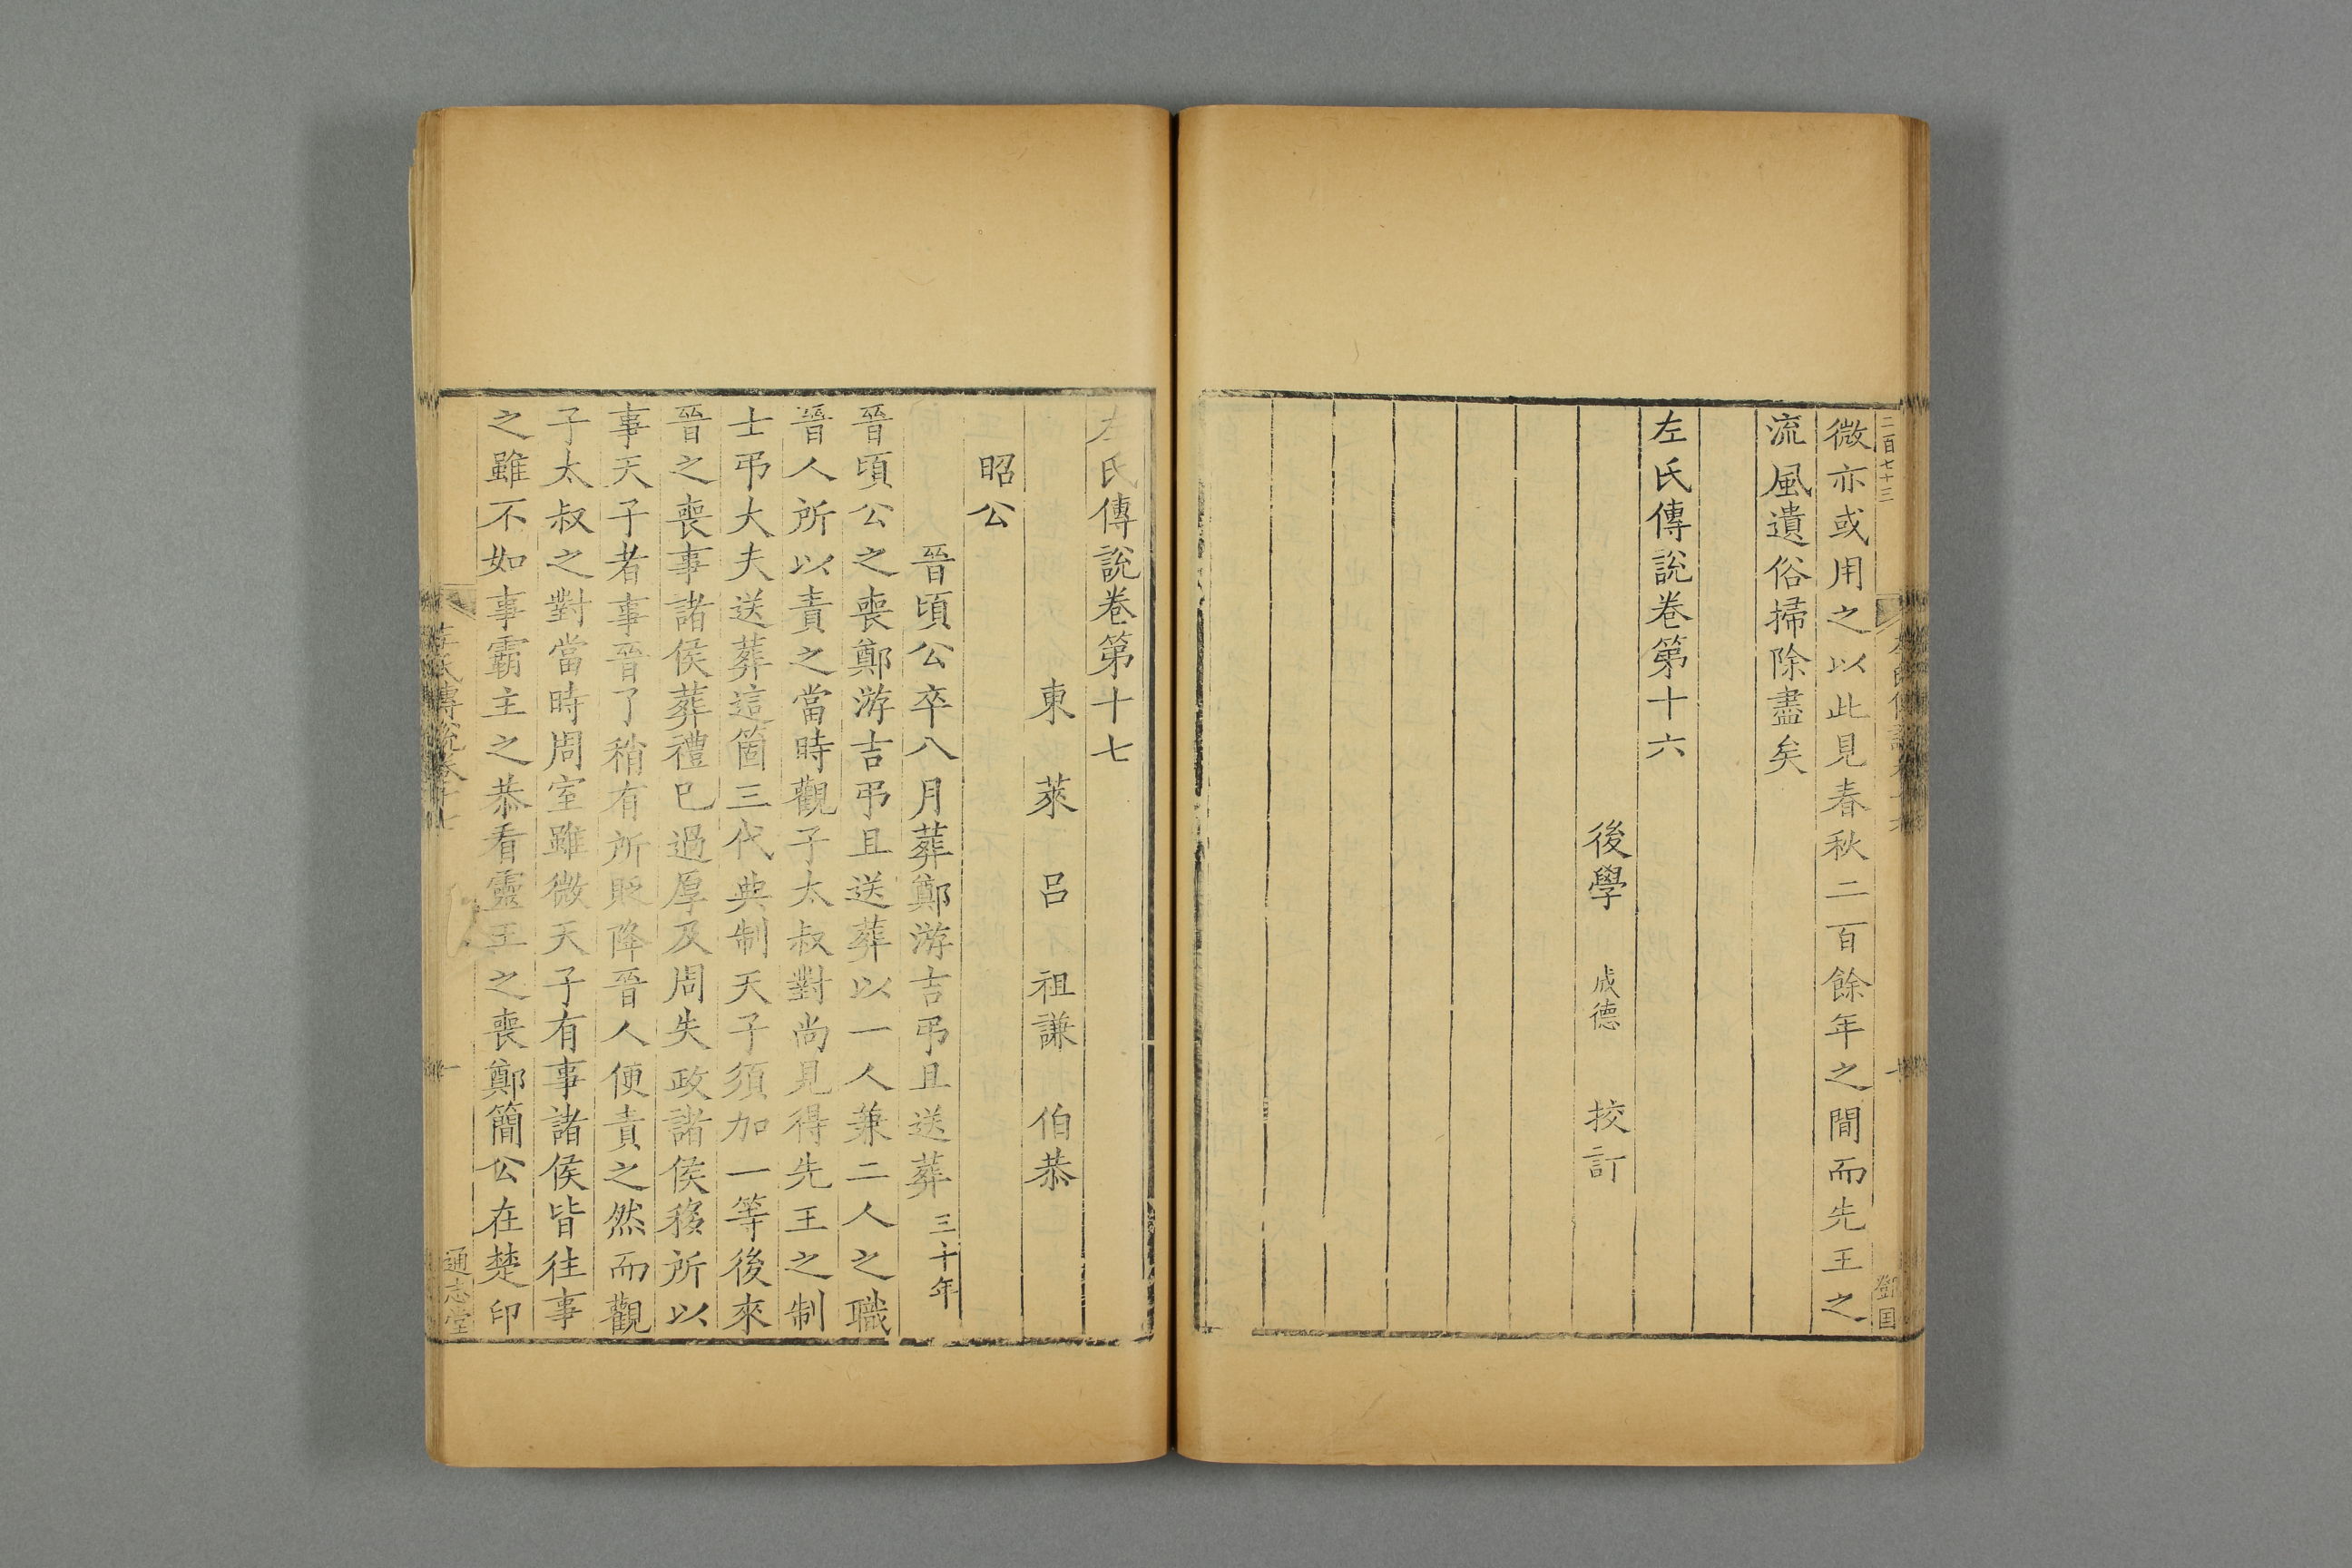 二百七十三
微亦或用之以此見春秋二百餘年之間而先王之
流風遺俗掃除盡矣
左氏傳説卷第十六
後學 成德 校訂
左氏傳說卷第十七
東萊呂祖謙伯恭
昭公
晉頃公卒八月葬鄭游吉弔且送葬三十年
晉頃公之喪鄭游吉弔且送葬以一人兼二人之職
晉人所以責之當時觀子太叔對尚見得先王之制
士弔大夫送葬這箇三代典制天子須加一等後來
晉之喪事諸侯葬禮已過厚及周失政諸侯移所以
事天子者事晉了稍有所貶降晉人便責之然而觀
子太叔之對當時周室雖微天子有事諸侯皆往事
之雖不如事霸主之恭看靈王之喪鄭簡公在楚印
左氏傳說卷十七
一
通志堂